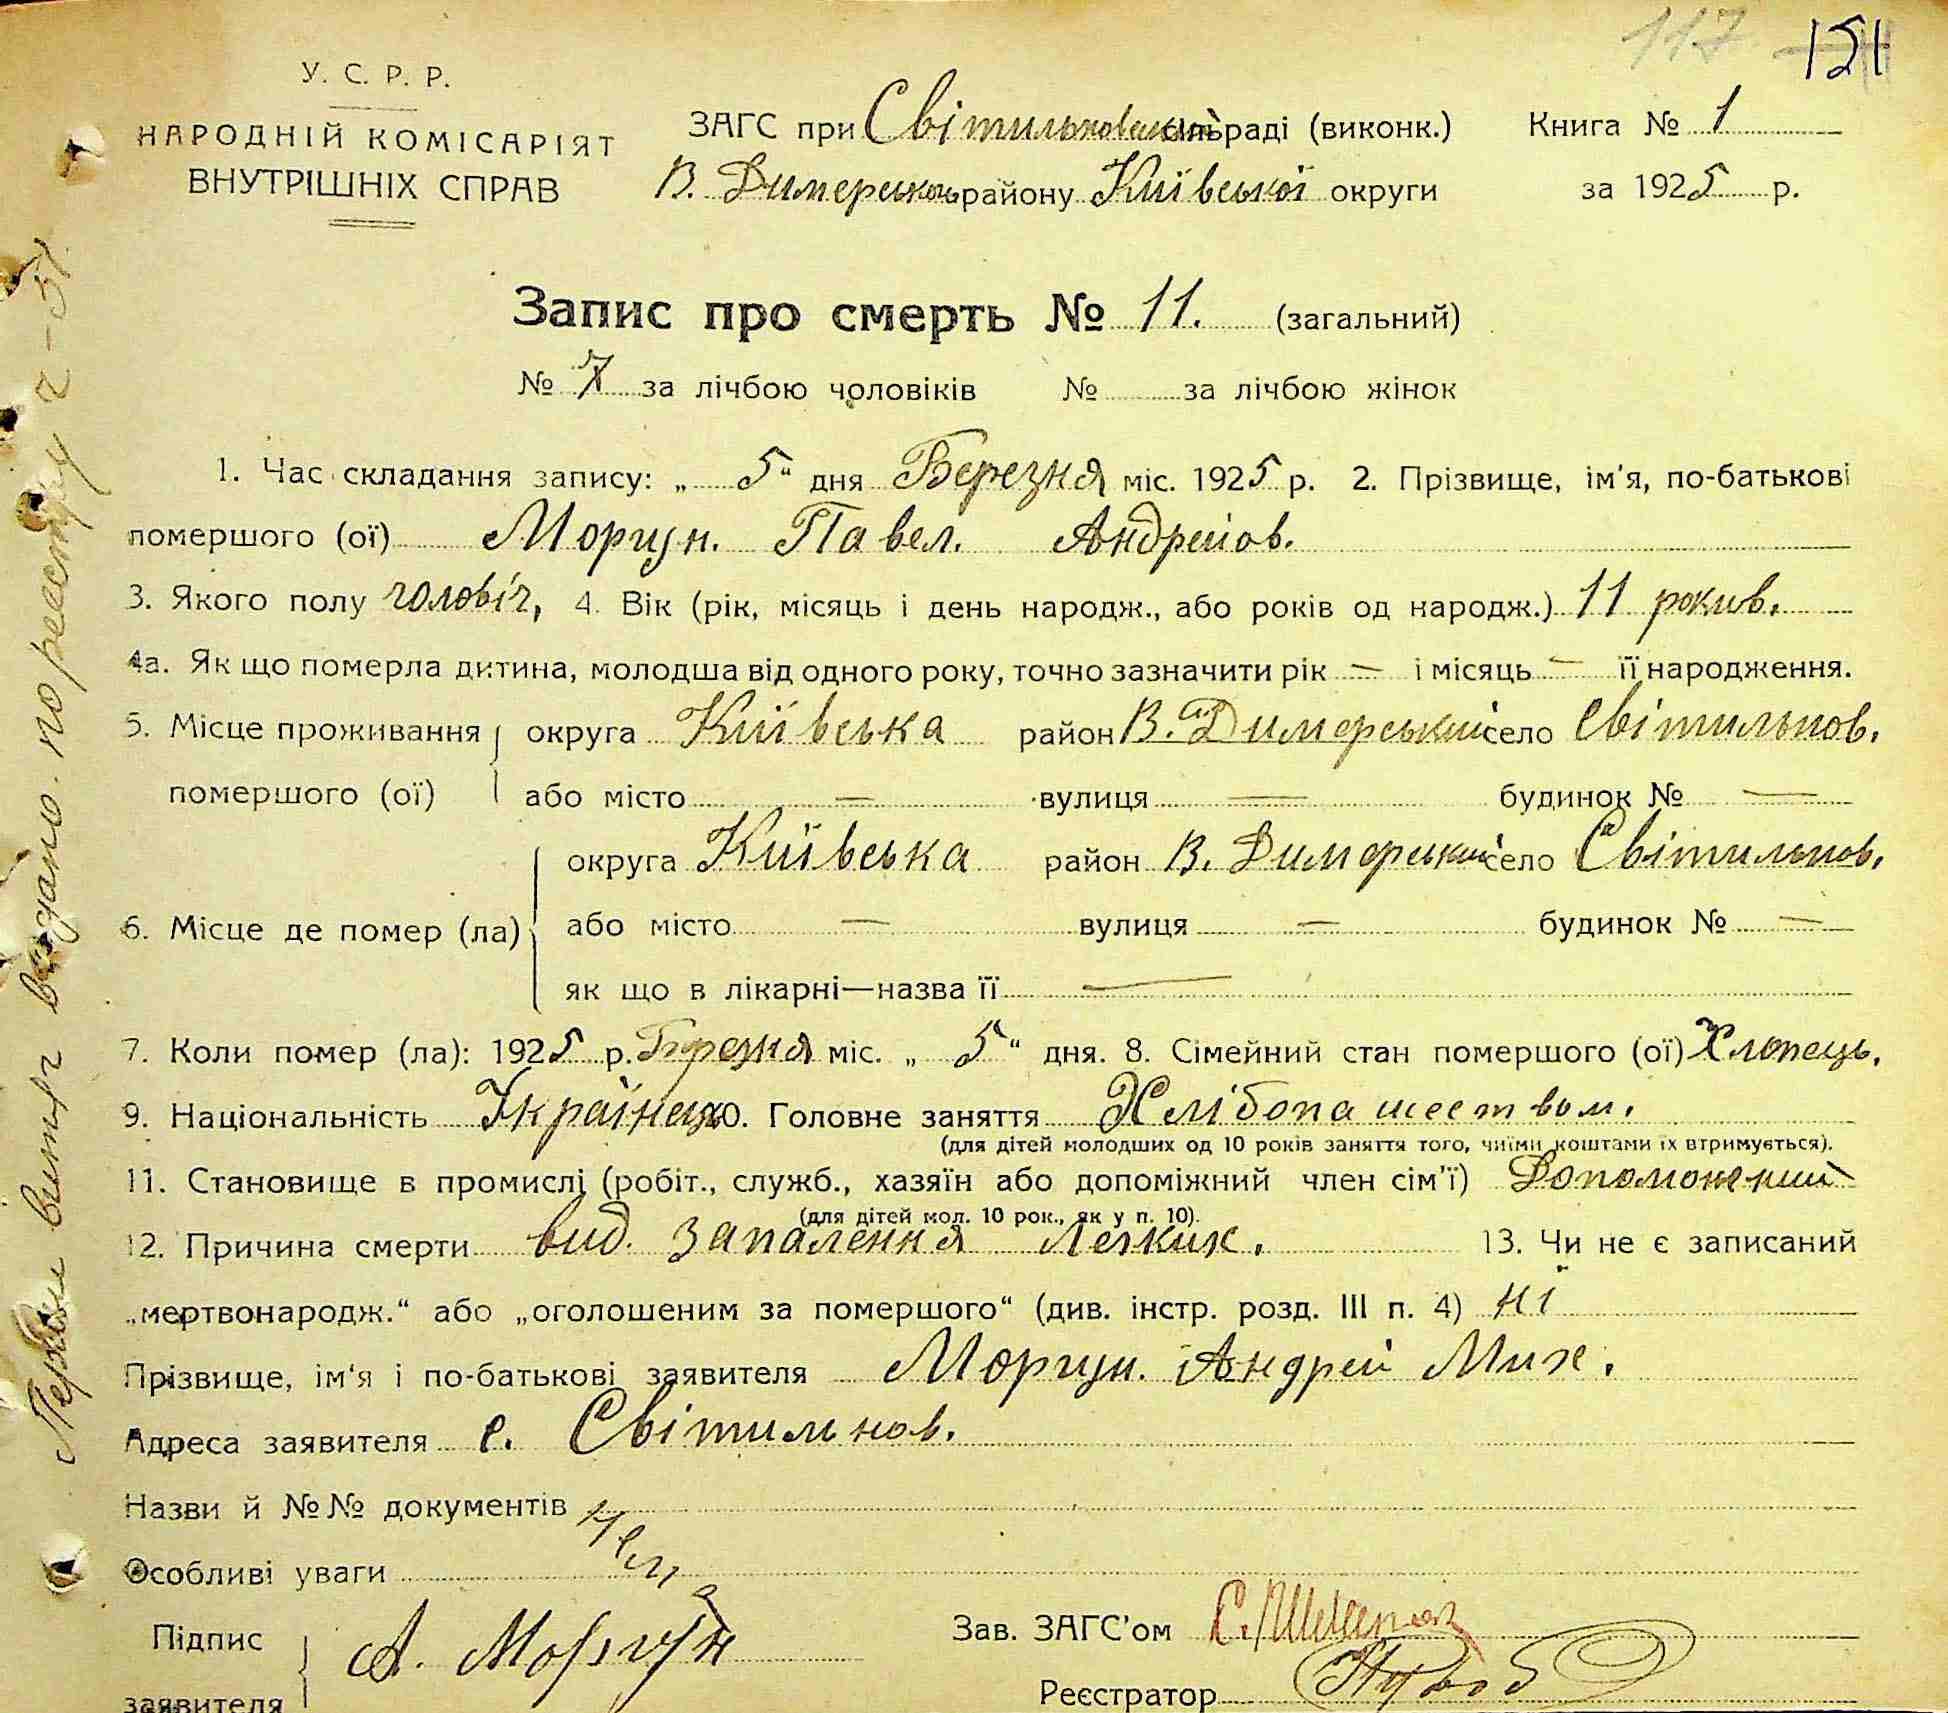 117 151
У. С. Р. Р.
НАРОДНІЙ КОМІСАРІЯТ
ВНУТРІШНІХ СПРАВ
ЗАГС при Світильновській сільраді (виконк.) Книга № 1
В. Димерського району Київської округи за 1925 р.
Запис про смерть № 11. (загальний)
№ 7 за лічбою чоловіків № за лічбою жінок
1. Час складання запису: „ 5 “ дня Березня міс. 1925 р. 2. Прізвище, ім'я, по-батькові
помершого (ої) Моргун. Павел. Андреїов.
3. Якого полу чоловіч, 4. Вік (рік, місяць і день народж., або років од народж.) 11 рокив.
4а. Як що померла дитина, молодша від одного року, точно зазначити рік — і місяць — її народження.
5. Місце проживання округа Київська район В. Димерський село Світильнов.
помершого (ої) або місто — вулиця — будинок № —
округа Київська район В. Димерський село Світильнов.
6. Місце де помер (ла) або місто — вулиця — будинок № —
як що в лікарні—назва її —
7. Коли помер (ла): 1925 р. Березня міс. „ 5 “ дня. 8. Сімейний стан помершого (ої) Хлопець.
9. Національність Українець 10. Головне заняття Хлібопашеством.
(для дітей молодших од 10 років заняття того, чиїми коштами їх втримується).
11. Становище в промислі (робіт., служб., хазяїн або допоміжний член сім'ї) Допоможений
(для дітей мол. 10 рок., як у п. 10).
12. Причина смерти вид. запалення Легких. 13. Чи не є записаний
„мертвонародж.“ або „оголошеним за помершого“ (див. інстр. розд. III п. 4) ні
Прізвище, ім'я і по-батькові заявителя Моргун. Андрей Мих.
Адреса заявителя с. Світильнов.
Назви й №№ документів
Особливі уваги
Підпис А. Моргун Зав. ЗАГС'ом
заявителя Реєстратор
Первий витяг видано. по реестру